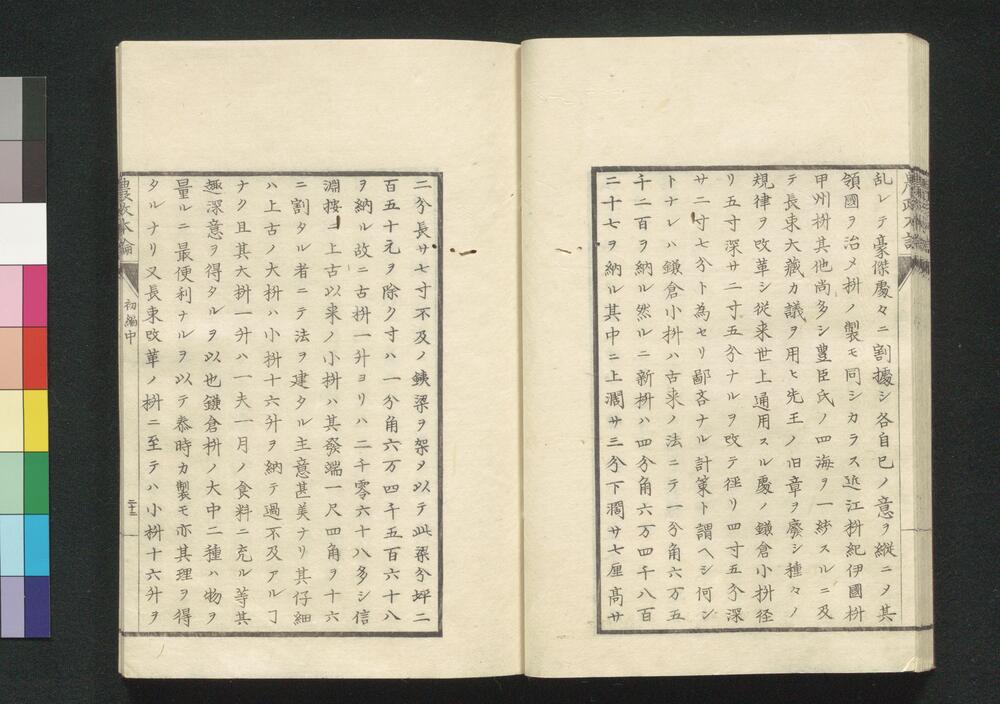 農政本論
乱レテ豪傑處々ニ割據シ各自已ノ意ヲ縦ニメ其
領國ヲ治メ枡ノ製モ同シカラス近江枡紀伊國枡
甲州枡其他尚多シ豊臣氏ノ四海ヲ一統スルニ及
テ長束大藏カ議ヲ用ヒ先王ノ旧章ヲ廢シ種々ノ
規律ヲ改革シ従来世上通用スル處ノ鎌倉小枡径
リ五寸深サ二寸五分ナルヲ改テ径リ四寸五分深
サ二寸七分ト為セリ鄙吝ナル計策ト謂ヘシ何ン
トナレハ鎌倉小枡ハ古来ノ法ニテ一分角六万五
千二百ヲ納ル然ルニ新枡ハ四分角六万四千八百
二十七ヲ納ル其中ニ上濶サ三分下濶サ七厘高サ
二分長サ七寸不及ノ鉄梁ヲ架ヲ以テ此梁分坪二
百五十元ヲ除ク寸ハ一分角六万四千五百六十八
ヲ納ル故ニ古枡一升ヨリハ二千零六十八多シ信
淵按ニ上古以来ノ小枡ハ其發端一尺四角ヲ十六
ニ割タル者ニテ法ヲ建タル主意甚美ナリ其仔細
ハ上古ノ大枡ハ小枡十六升ヲ納テ過不及アル丁
ナク且其大枡一升ハ一夫一月ノ食料ニ充ル等其
趣深意ヲ得タルヲ以也鎌倉枡ノ大中二種ハ物ヲ
量ルニ最便利ナルヲ以テ泰時カ製モ亦其理ヲ得
タルナリ又長束改革ノ枡ニ至テハ小枡十六升ヲ
農政本論
初編中
二十三